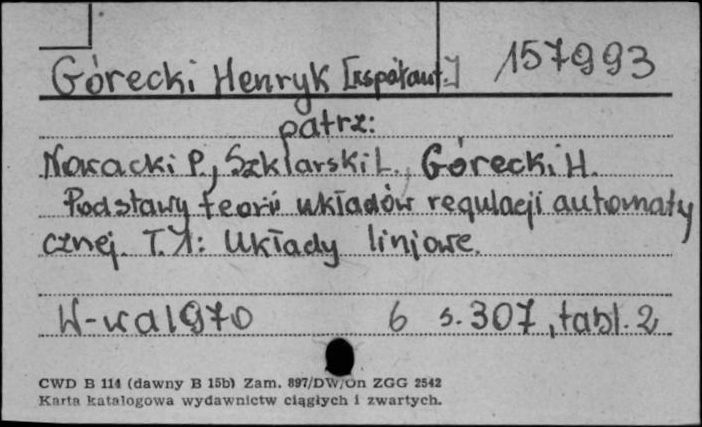 Górecki Henryk [współaut.] 157993
patrz:
Nowacki P., Szklarski L., Górecki H.
Podstawy teorii układów regulacji automaty
cznej. T.1: Układy liniowe.
W-wa 1970 6 s. 307, tabl. 2
CWD B 114 (dawny B 15b) Zam. 897/DW/On ZGG 2542
Karta katalogowa wydawnictw ciągłych i zwartych.